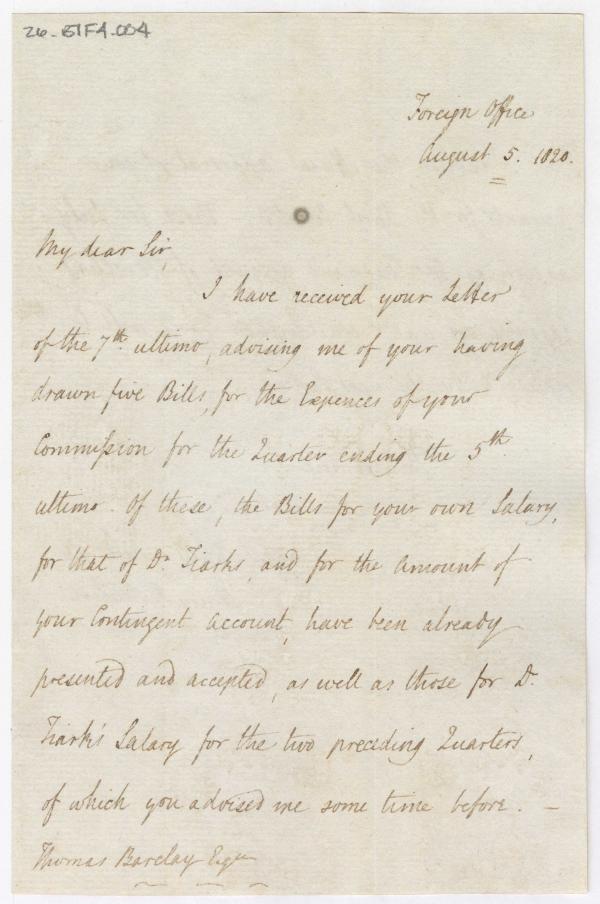 26-BTF4.004
Foreign Office
August 5. 1820.
My dear Sir,
I have received your Letter
of the 7th. ultimo, advising me of your having
drawn five Bills, for the Expences of your
Commission for the Quarter ending the 5th.
ultimo. Of these, the Bills for your own Salary,
for that of Dr. Tiarks, and for the Amount of
your Contingent Account, have been already
presented and accepted, as well as those for Dr.
Tiark's Salary for the two preceding Quarters,
of which you advised me some time before. —
Thomas Barclay Esqre